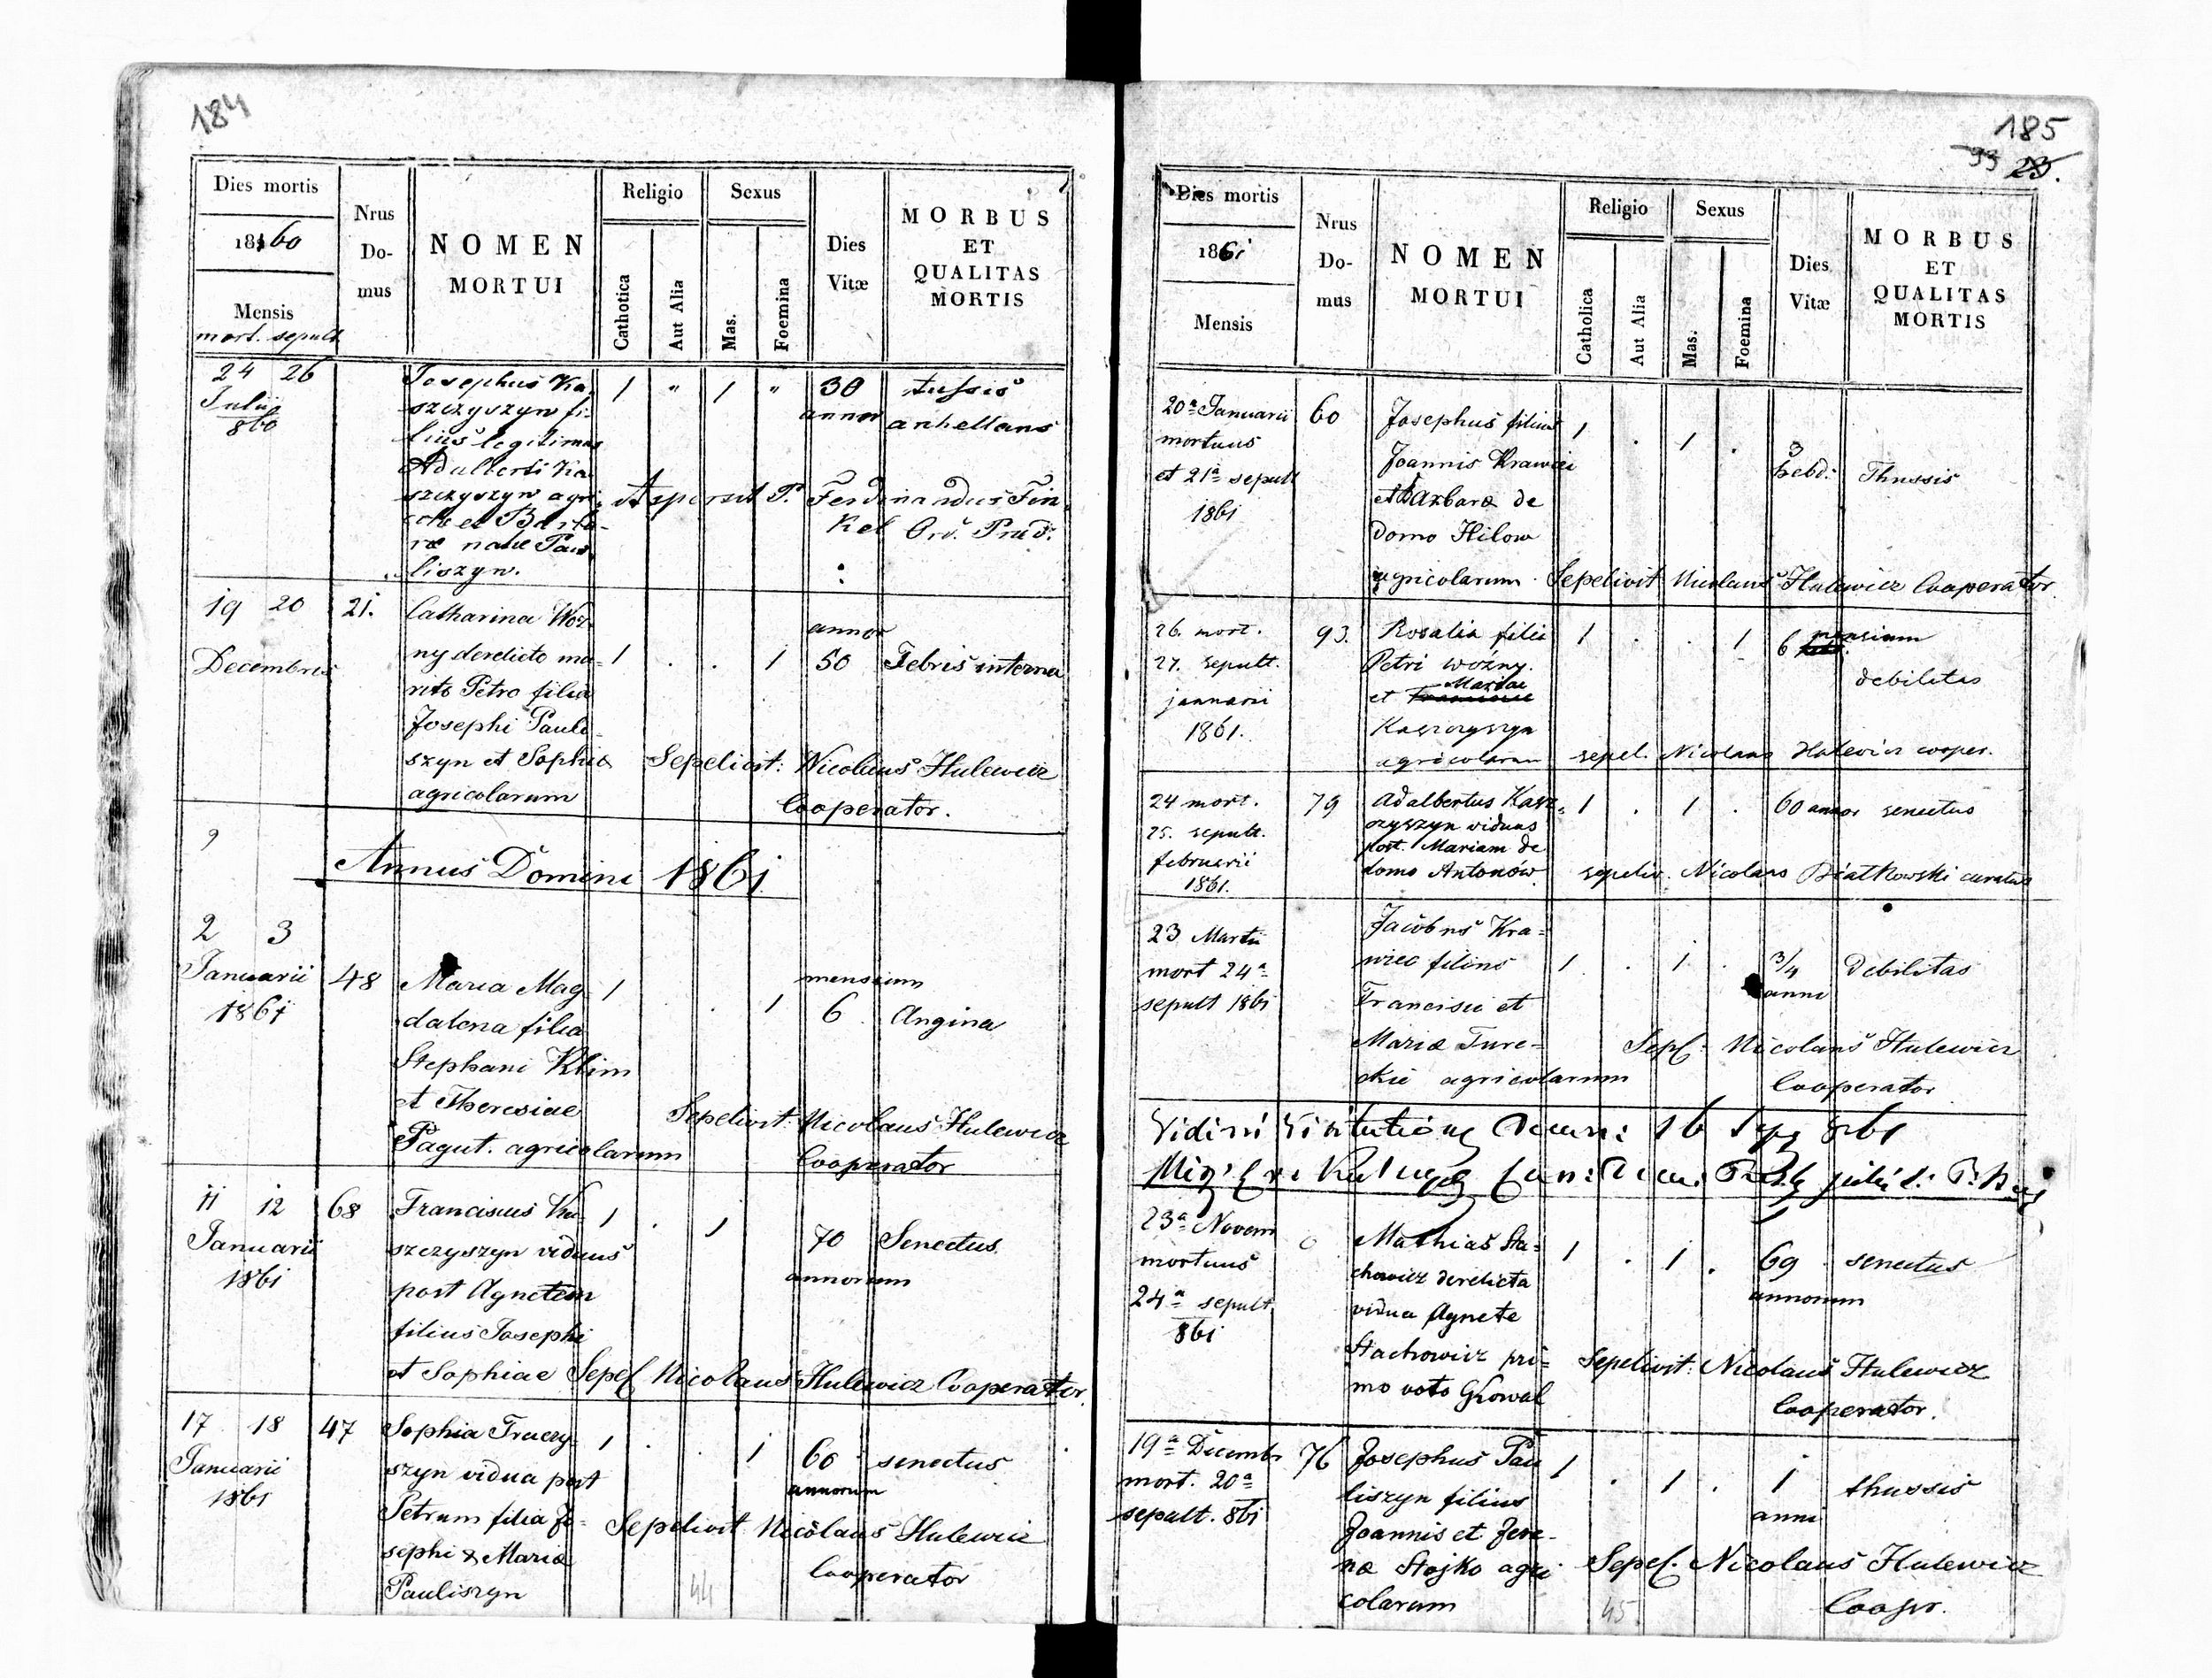 184
Dies mortis
1860
Mensis
mort. sepult
Nrus
Do-
mus
NOMEN
MORTUI
Religio
Catholica
Aut Alia
Sexus
Mas.
Foemina
Dies
Vitæ
MORBUS
ET
QUALITAS
MORTIS
24 26
Julii
860
Josephus Ka-
szczyszyn fi-
lius legitimus
Adalberti Ka-
szczyszyn agri-
colæ et Barba-
ræ natæ Pau-
liszyn.
1 " 1 "
30
annor
tussis
anhellans
Aspersit P. Ferdinandus Fin-
kel Ord. Præd.
19 20
Decembris
21.
Catharina Woź-
ny derelicto ma-
rito Petro filia
Josephi Pauli-
szyn et Sophiæ
agricolarum
1 . . 1
annor
50
Febris interna
Sepelivit: Nicolaus Hulewicz
Cooperator.
9
Annus Domini 1861
2 3
Januarii
1861
48
Maria Mag-
dalena filia
Stephani Klim
et Theresiae
Pagut. agricolarum
1 . 1
mensium
6
Angina
Sepelivit: Nicolaus Hulewicz
Cooperator
11 12
Januarii
1861
68
Franciscus Ka-
szczyszyn viduus
post Agnetem
filius Josephi
et Sophiae
1 . 1
70
annorum
Senectus
Sepel Nicolaus Hulewicz Cooperator.
17 18
Januarii
1861
47
Sophia Traczy-
szyn vidua post
Petrum filia Jo-
sephi & Mariæ
Pauliszyn
1 . . 1
60
annorum
senectus
Sepelivit Nicolaus Hulewicz
Cooperator
44
185
93 23.
Dies mortis
1861
Mensis
Nrus
Do-
mus
NOMEN
MORTUI
Religio
Catholica
Aut Alia
Sexus
Mas.
Foemina
Dies
Vitæ
MORBUS
ET
QUALITAS
MORTIS
20a Januarii
mortuus
et 21a sepult
1861
60
Josephus filius
Joannis Krawiec
et Barbaræ de
domo Hilow
agricolarum
1 . 1 .
3
hebd:
Thussis
Sepelivit Nicolaus Hulewicz Cooperator
26. mort.
27. sepult.
januarii
1861.
93.
Rosalia filia
Petri woźny.
Mariae
et
Kaszczyszyn
agricolarum
1 . . 1
6 mensium
debilitas
sepel. Nicolaus Hulewicz cooper.
24 mort.
25. sepult.
februarii
1861.
79
Adalbertus Kasz-
czyszyn viduus
post. Mariam de
domo Antonów
1 . 1 .
60 annor
senectus
sepeliv. Nicolaus Białkowski curatus
23 Martii
mort 24a
sepult 1861
Jacobus Kra-
wiec filius
Francisci et
Mariæ Turec-
kie agricolarum
1 . 1 .
3/4
anni
Debilitas
Sepel. Nicolaus Hulewicz
Cooperator
23a Novem
mortuus
24a sepult
861
Mathias Sta-
chowicz derelicta
vidua Agnete
Stachowicz pri-
mo voto Głowal
1 . 1 .
69
annorum
senectus
Sepelivit: Nicolaus Hulewicz
Cooperator.
19a Decembr
mort. 20a
sepult. 861
76
Josephus Pau
liszyn filius
Joannis et Ire-
næ Stojko agri
colarum
1 . 1 .
1
anni
thussis
Sepel. Nicolaus Hulewicz
Cooper.
45